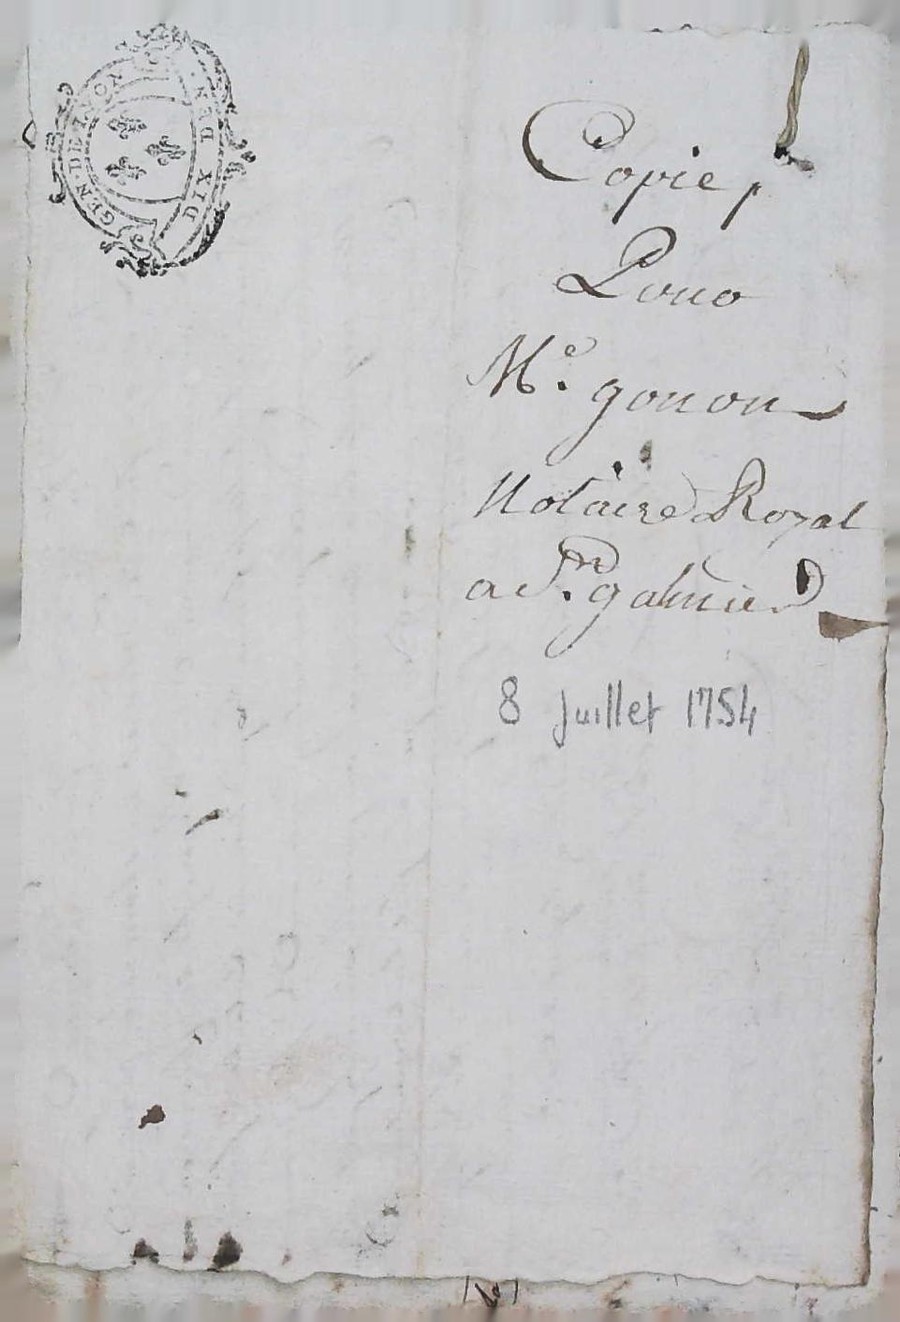 GEN. DE LYON
DIX DEN.
Copie /.
Pour
Me. gonon
Notaire Royal
a St. galmier
8 Juillet 1754